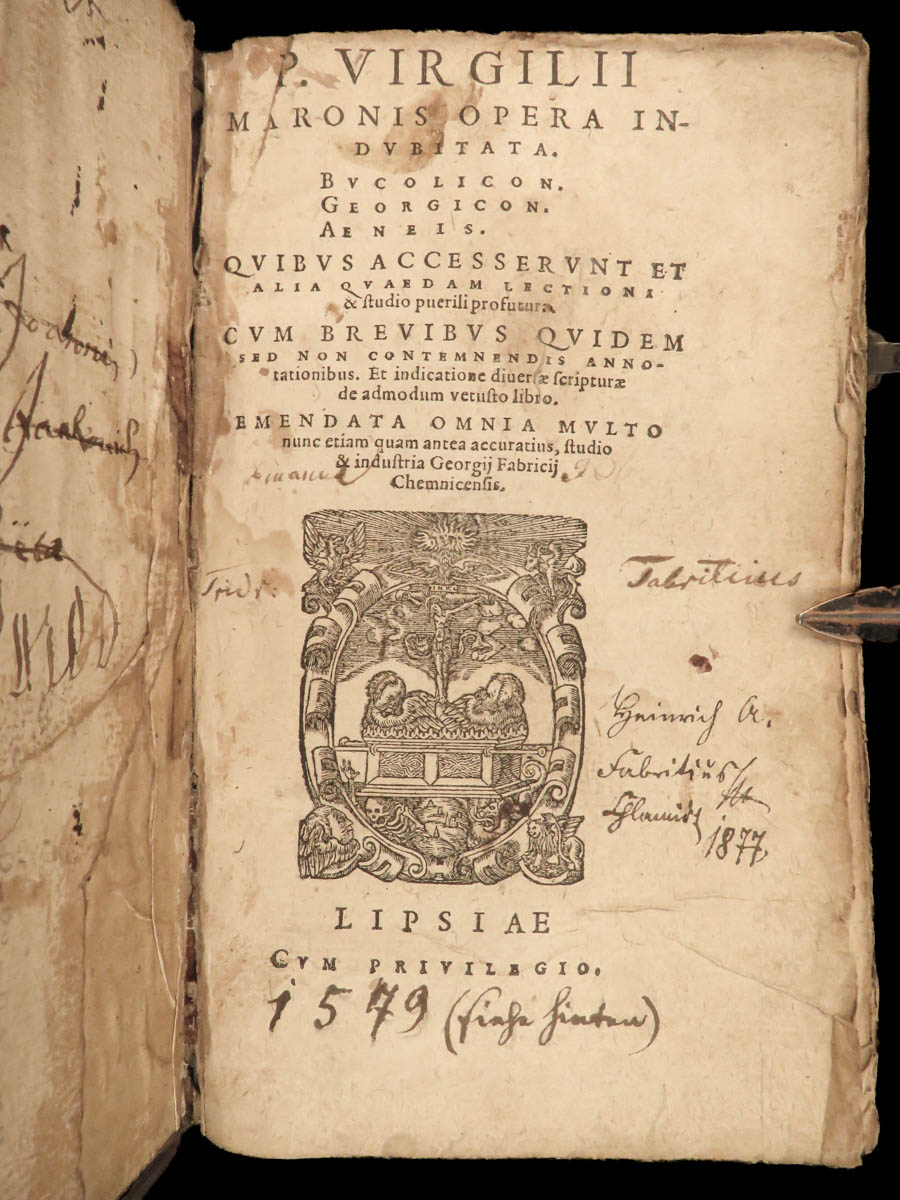 P. VIRGILII
MARONIS OPERA IN-
DVBITATA.
BVCOLICON.
GEORGICON.
AENEIS.
QVIBVS ACCESSERVNT ET
ALIA QVAEDAM LECTIONI
& studio puerili profutura.
CVM BREVIBVS QVIDEM
SED NON CONTEMNENDIS ANNO-
tationibus. Et indicatione diuersæ scripturæ
de admodum vetusto libro.
EMENDATA OMNIA MVLTO
nunc etiam quam antea accuratius, studio
& industria Georgij Fabricij
Chemnicensis.
Fabritius
Heinrich A.
Fabritius
1877
LIPSIAE
CVM PRIVILEGIO.
1579 (siehe hinten)